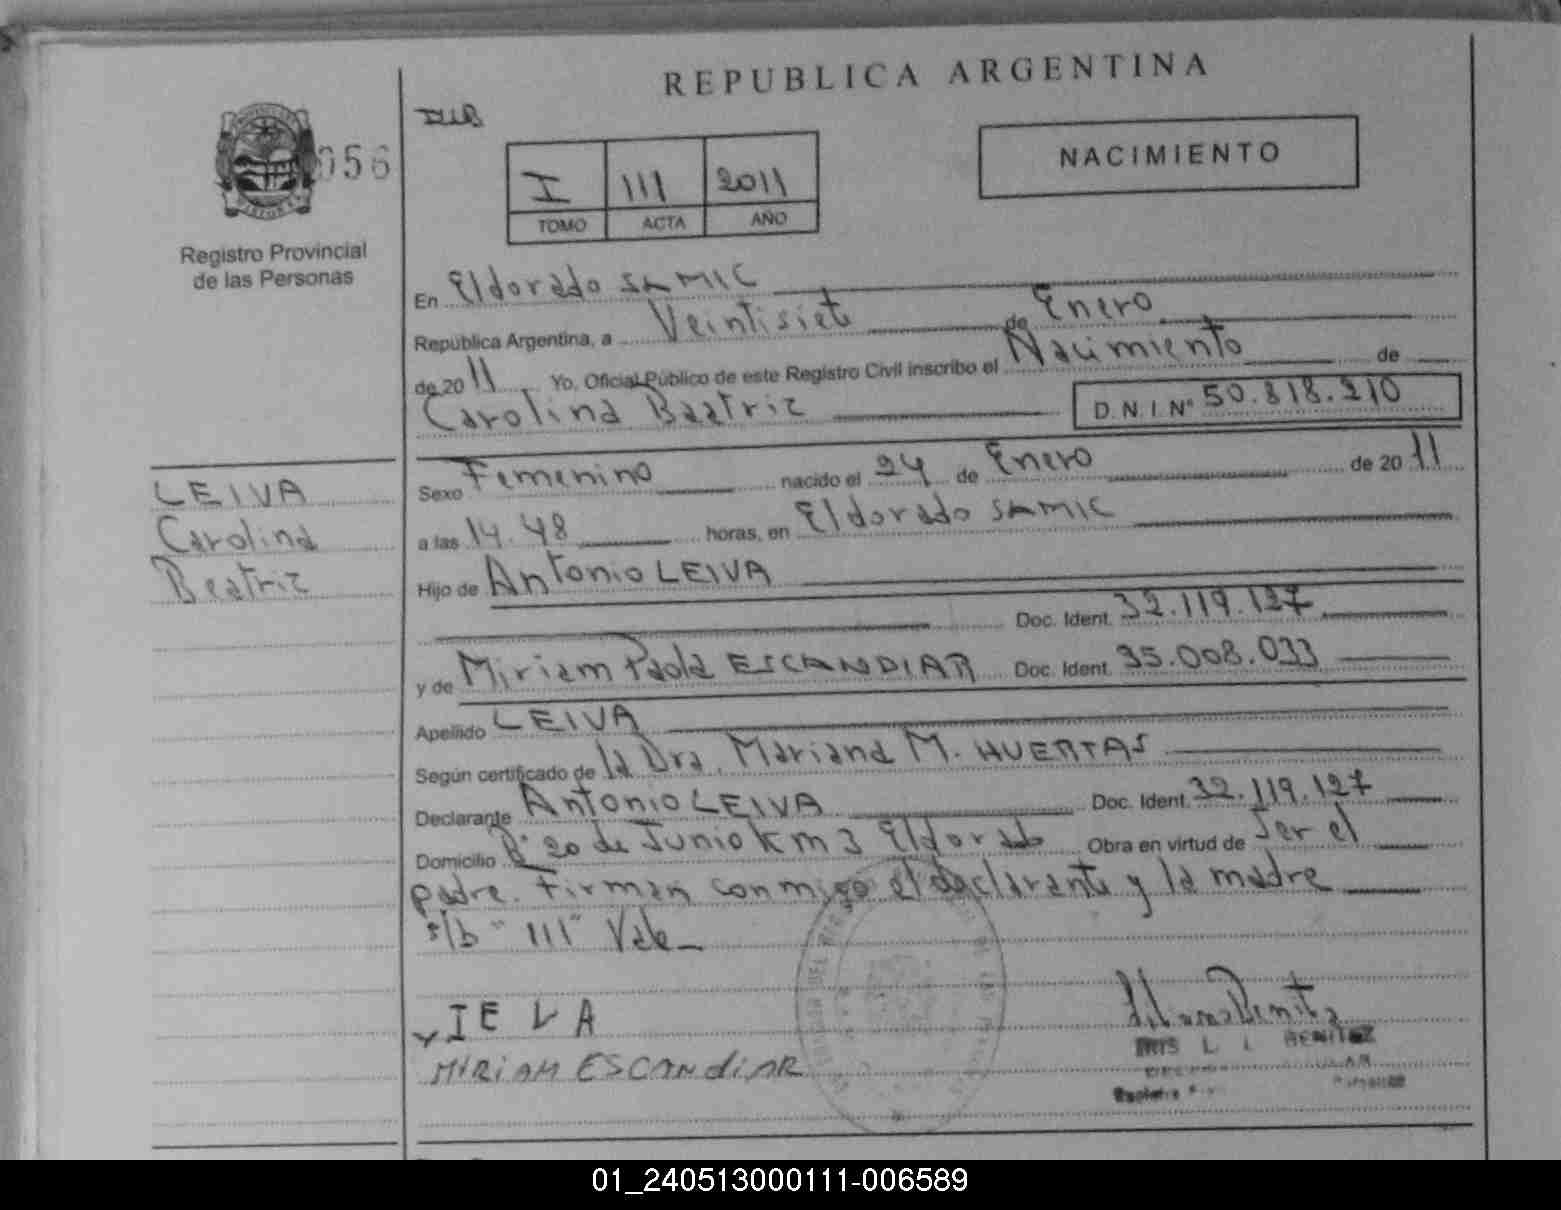 REPUBLICA ARGENTINA
056
Registro Provincial
de las Personas
I 111 2011
TOMO ACTA AÑO
NACIMIENTO
En Eldorado SAMIC
República Argentina, a Veintisiete de Enero
de 2011, Yo, Oficial Público de este Registro Civil inscribo el Nacimiento de
Carolina Beatriz D.N.I.Nº 50.818.210
LEIVA
Carolina
Beatriz
Sexo Femenino nacido el 24 de Enero de 2011
a las 14.48 horas, en Eldorado SAMIC
Hijo de Antonio LEIVA
Doc. Ident. 32.119.127
y de Miriam Paola ESCANDIAR Doc. Ident. 35.008.033
Apellido LEIVA
Según certificado de la Dra. Mariana M. HUERTAS
Declarante Antonio LEIVA Doc. Ident. 32.119.127
Domicilio Bº 20 de Junio Km 3 Eldorado Obra en virtud de Ser el
padre. Firman conmigo el declarante y la madre
s/b "111" Vale
IEVA
MIRIAM ESCANDIAR
IRIS L. BENITEZ
01_240513000111-006589